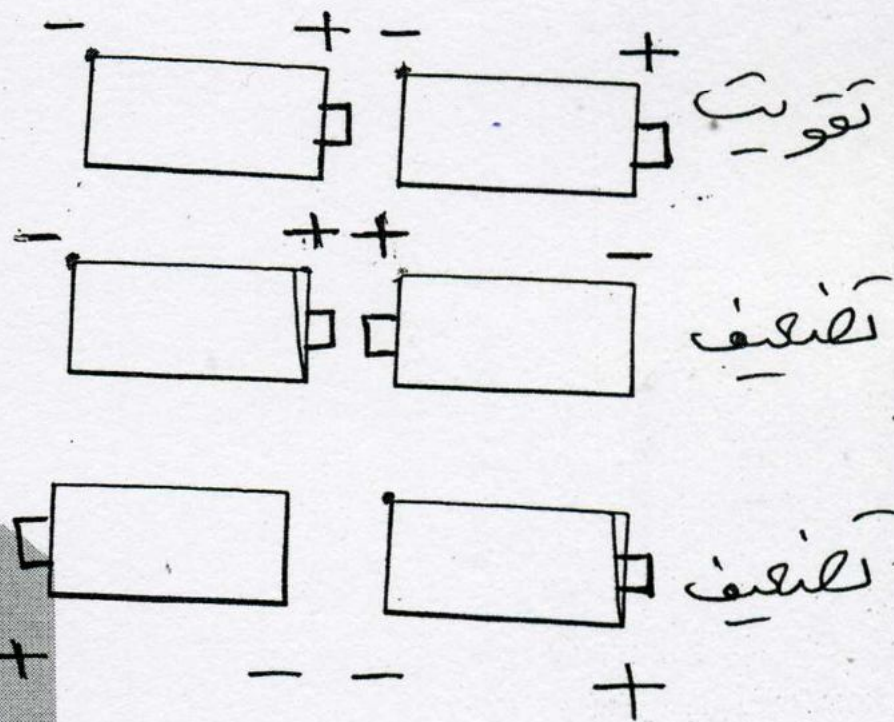 - + - +
تقویت
- + + -
تضعیف
تضعیف
+ - - +